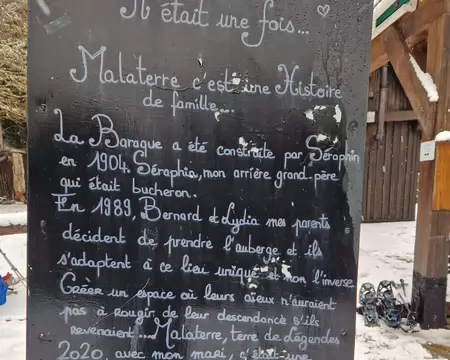 Il était une fois...
Malaterre c'est une Histoire
de famille...
La Baraque a été construite par Séraphin
en 1904. Séraphin, mon arrière grand-père
qui était bucheron.
En 1989, Bernard et Lydia mes parents
décident de prendre l'auberge et ils
s'adaptent à ce lieu unique et non l'inverse
Créer un espace où leurs aïeux n'auraient
pas à rougir de leur descendance s'ils
revenaient... Malaterre, terre de légendes
2020, avec mon mari, c'était une